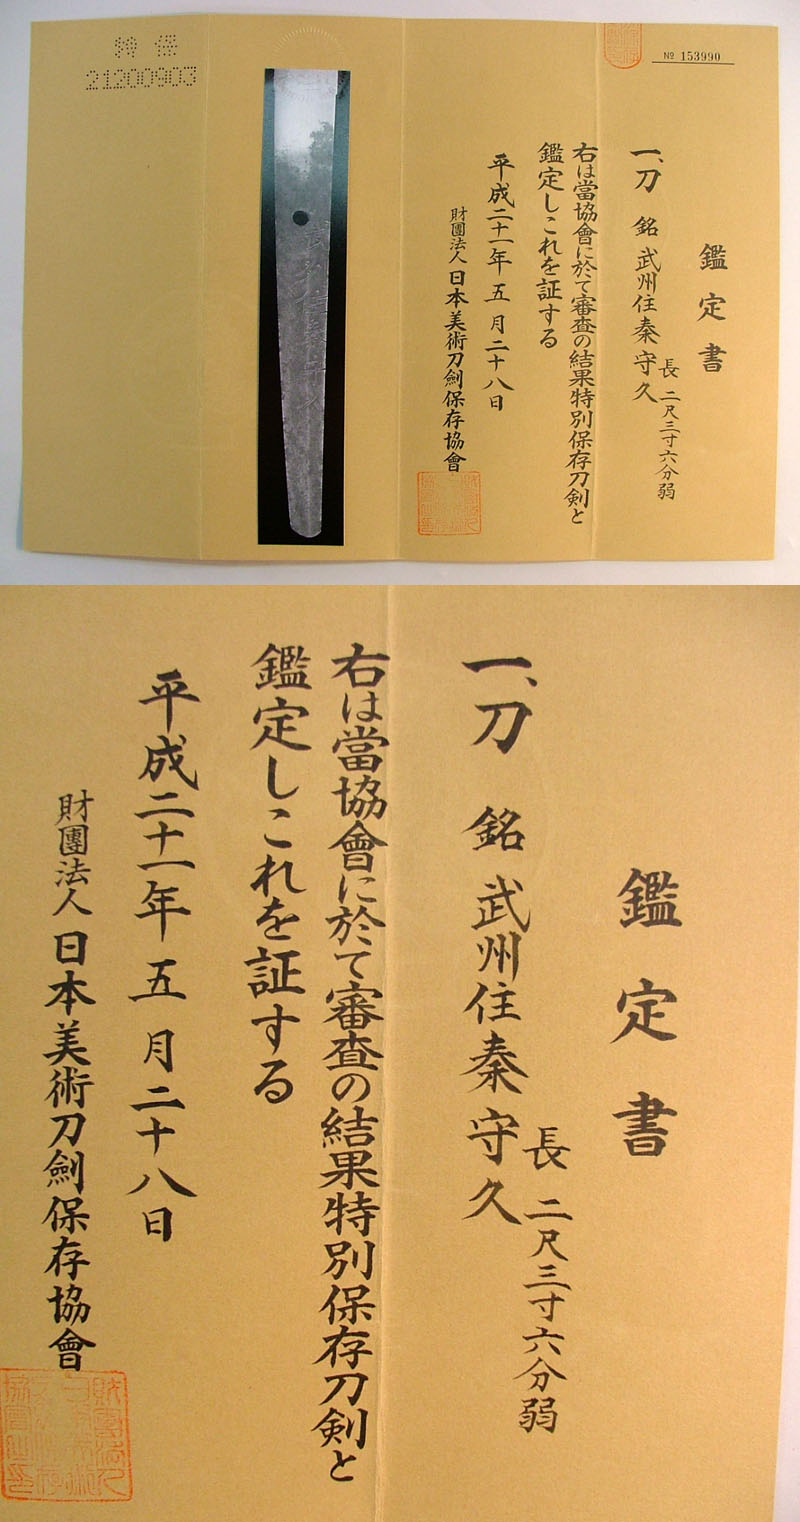 № 153990
鑑定書
一、刀 銘 武州住秦守久
長 二尺三寸六分弱
右は當協會に於て審査の結果特別保存刀剣と
鑑定しこれを証する
平成二十一年 五 月 二十八日
財團法人 日本美術刀劍保存協會
特 保
21200903
鑑定書
一、刀 銘 武州住秦守久
長 二尺三寸六分弱
右は當協會に於て審査の結果特別保存刀剣と
鑑定しこれを証する
平成二十一年 五 月 二十八日
財團法人 日本美術刀劍保存協會